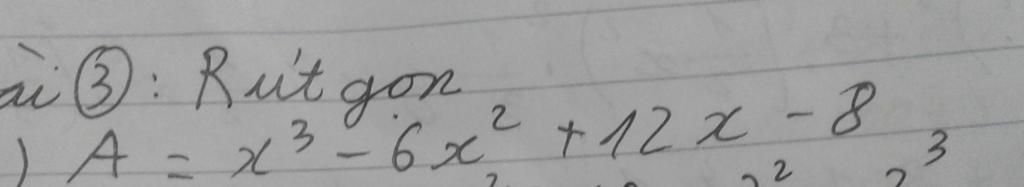 ài ③: Rút gọn
) A = x³ - 6x² + 12x - 8